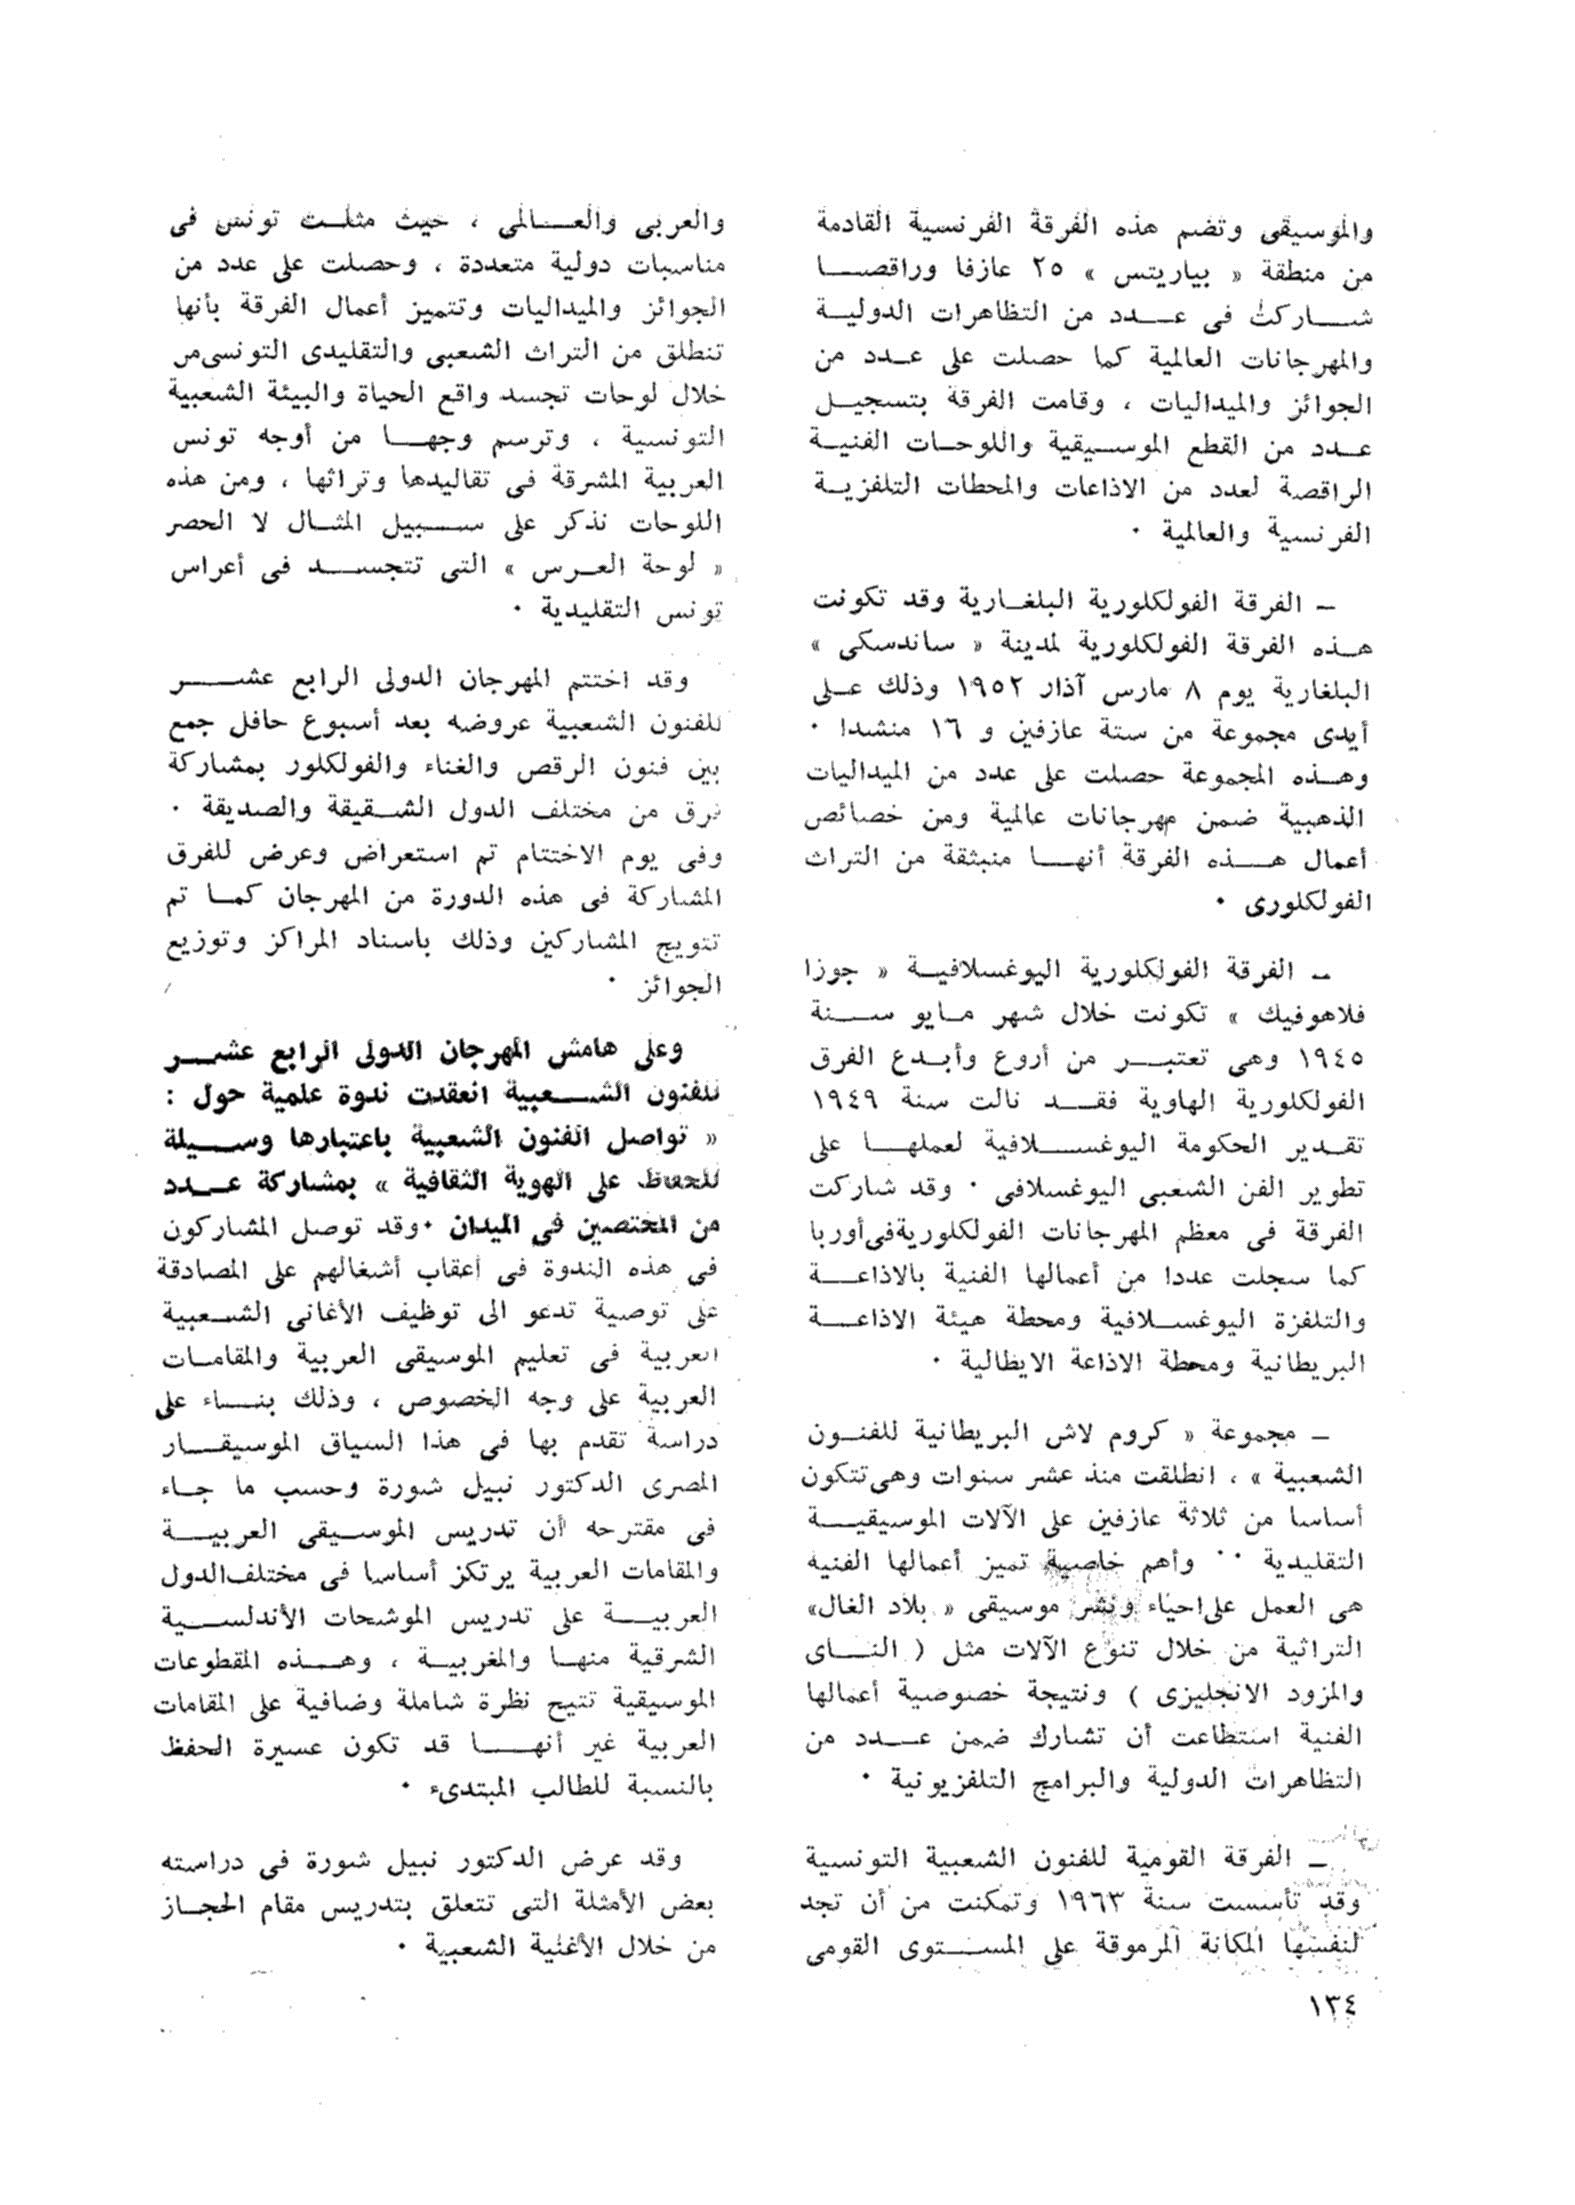 والموسيقى وتضم هذه الفرقة الفرنسية القادمة
من منطقة « بياريتس » ٢٥ عازفا وراقصا
شاركت فى عدد من التظاهرات الدولية
والمهرجانات العالمية كما حصلت على عدد من
الجوائز والميداليات ، وقامت الفرقة بتسجيل
عدد من القطع الموسيقية واللوحات الفنية
الراقصة لعدد من الاذاعات والمحطات التلفزية
الفرنسية والعالمية ٠
– الفرقة الفولكلورية البلغارية وقد تكونت
هذه الفرقة الفولكلورية لمدينة « ساندسكى »
البلغارية يوم ٨ مارس آذار ١٩٥٢ وذلك على
أيدى مجموعة من ستة عازفين و ١٦ منشدا ٠
وهذه المجموعة حصلت على عدد من الميداليات
الذهبية ضمن مهرجانات عالمية ومن خصائص
أعمال هذه الفرقة أنها منبثقة من التراث
الفولكلورى ٠
– الفرقة الفولكلورية اليوغسلافية « جوزا
فلاهوفيك » تكونت خلال شهر مايو سنة
١٩٤٥ وهى تعتبر من أروع وأبدع الفرق
الفولكلورية الهاوية فقد نالت سنة ١٩٤٩
تقدير الحكومة اليوغسلافية لعملها على
تطوير الفن الشعبى اليوغسلافى ٠ وقد شاركت
الفرقة فى معظم المهرجانات الفولكلورية فى أوربا
كما سجلت عددا من أعمالها الفنية بالاذاعة
والتلفزة اليوغسلافية ومحطة هيئة الاذاعة
البريطانية ومحطة الاذاعة الايطالية ٠
– مجموعة « كروم لاش البريطانية للفنون
الشعبية » ، انطلقت منذ عشر سنوات وهى تتكون
أساسا من ثلاثة عازفين على الآلات الموسيقية
التقليدية ٠٠ وأهم خاصية تميز أعمالها الفنية
هى العمل على احياء ونشر موسيقى « بلاد الغال»
التراثية من خلال تنوع الآلات مثل ( الناى
والمزود الانجليزى ) ونتيجة خصوصية أعمالها
الفنية استطاعت أن تشارك ضمن عدد من
التظاهرات الدولية والبرامج التلفزيونية ٠
– الفرقة القومية للفنون الشعبية التونسية
وقد تأسست سنة ١٩٦٣ وتمكنت من أن تجد
لنفسها المكانة المرموقة على المستوى القومى
١٣٤
والعربى والعالمى ، حيث مثلت تونس فى
مناسبات دولية متعددة ، وحصلت على عدد من
الجوائز والميداليات وتتميز أعمال الفرقة بأنها
تنطلق من التراث الشعبى والتقليدى التونسى من
خلال لوحات تجسد واقع الحياة والبيئة الشعبية
التونسية ، وترسم وجها من أوجه تونس
العربية المشرقة فى تقاليدها وتراثها ، ومن هذه
اللوحات نذكر على سبيل المثال لا الحصر
« لوحة العرس » التى تتجسد فى أعراس
تونس التقليدية ٠
وقد اختتم المهرجان الدولى الرابع عشر
للفنون الشعبية عروضه بعد أسبوع حافل جمع
بين فنون الرقص والغناء والفولكلور بمشاركة
فرق من مختلف الدول الشقيقة والصديقة ٠
وفى يوم الاختتام تم استعراض وعرض للفرق
المشاركة فى هذه الدورة من المهرجان كما تم
تتويج المشاركين وذلك باسناد المراكز وتوزيع
الجوائز ٠
وعلى هامش المهرجان الدولى الرابع عشر
للفنون الشعبية انعقدت ندوة علمية حول :
« تواصل الفنون الشعبية باعتبارها وسيلة
للحفاظ على الهوية الثقافية » بمشاركة عدد
من المختصين فى الميدان ٠ وقد توصل المشاركون
فى هذه الندوة فى أعقاب أشغالهم على المصادقة
على توصية تدعو الى توظيف الأغانى الشعبية
العربية فى تعليم الموسيقى العربية والمقامات
العربية على وجه الخصوص ، وذلك بناء على
دراسة تقدم بها فى هذا السياق الموسيقار
المصرى الدكتور نبيل شورة وحسب ما جاء
فى مقترحه أن تدريس الموسيقى العربية
والمقامات العربية يرتكز أساسا فى مختلف الدول
العربية على تدريس الموشحات الأندلسية
الشرقية منها والمغربية ، وهذه المقطوعات
الموسيقية تتيح نظرة شاملة وضافية على المقامات
العربية غير أنها قد تكون عسيرة الحفظ
بالنسبة للطالب المبتدىء ٠
وقد عرض الدكتور نبيل شورة فى دراسته
بعض الأمثلة التى تتعلق بتدريس مقام الحجاز
من خلال الأغنية الشعبية ٠